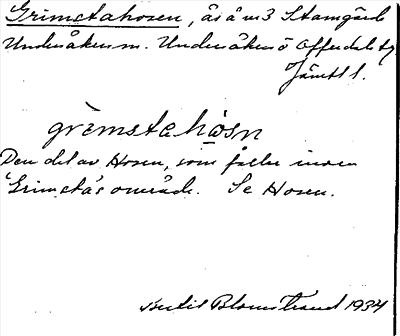 Grimstahosen, ås å m 3 Stamgärde
Undersåkers sn. Undersåkers o Offerdals tg
Jämtl l.
grìmstahòsn
Den del av Hosen, som faller inom
Grimsta's område. Se Hosen.
Bertil Blomstrand 1934